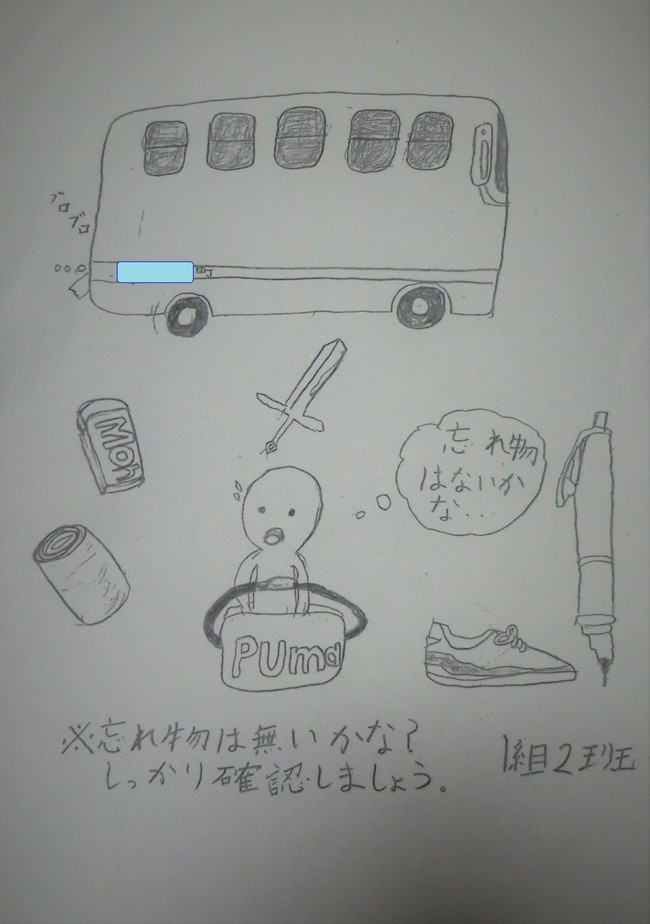 ブロ
ブロ
町
Moh
忘れ物
はないか
な...
PUma
※忘れ物は無いかな?
しっかり確認しましょう。
1組2班